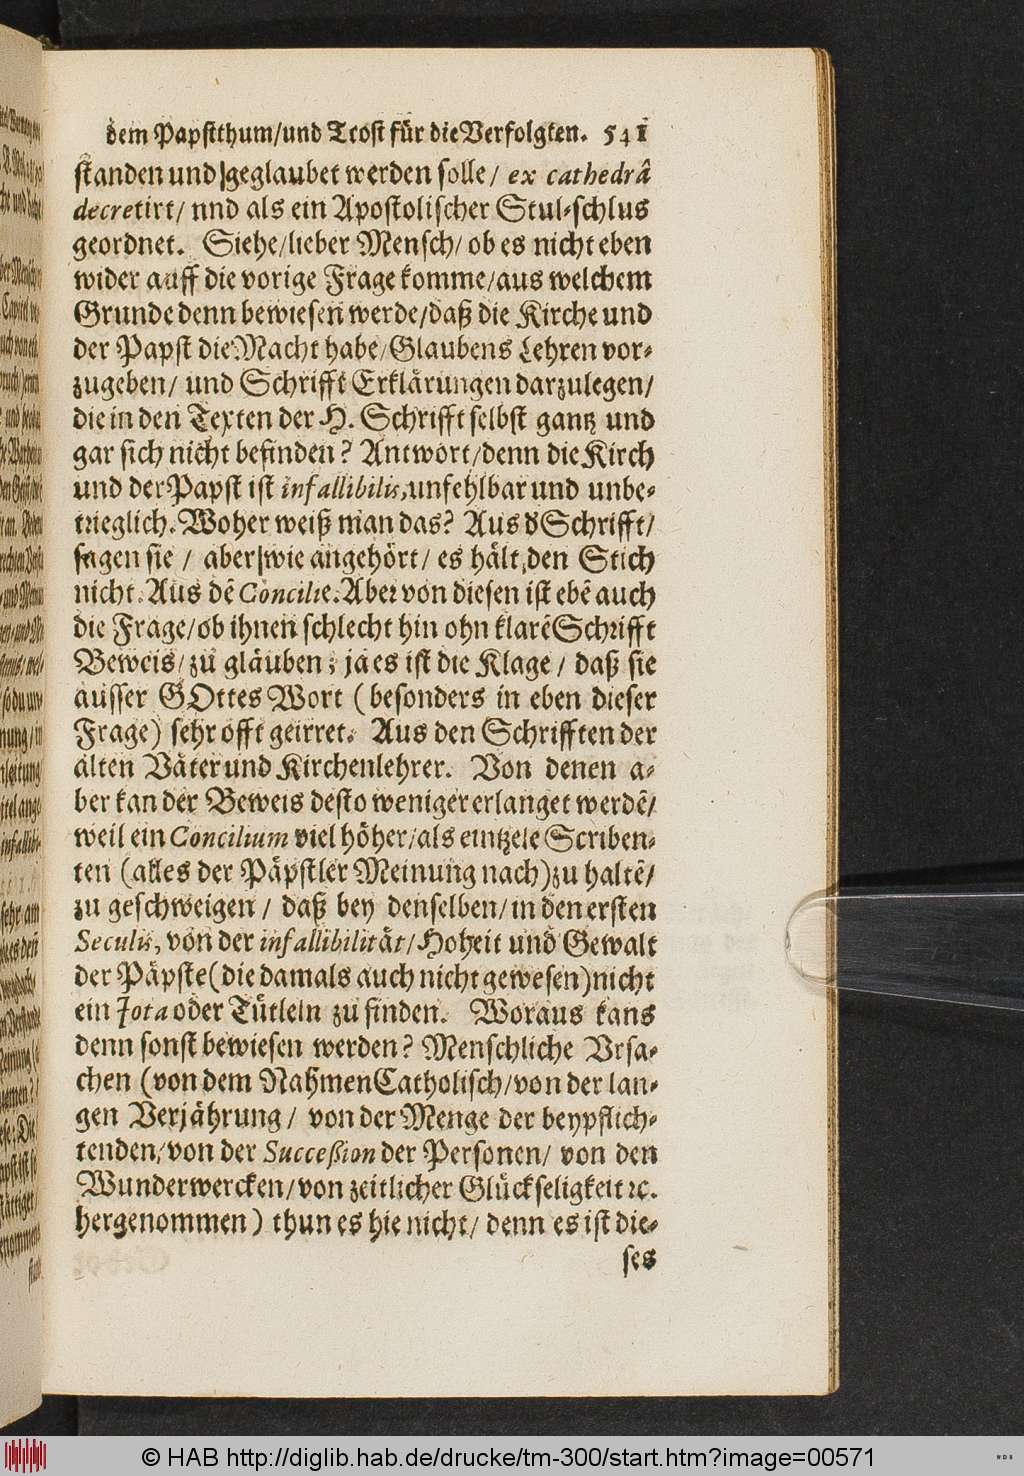 dem Papstthum/und Trost für die Verfolgten. 541
standen und geglaubet werden solle/ ex cathedrâ
decretirt/ nnd als ein Apostolischer Stul-schlus
geordnet. Siehe/lieber Mensch/ ob es nicht eben
wider auff die vorige Frage komme/aus welchem
Grunde denn bewiesen werde/daß die Kirche und
der Papst die Macht habe/Glaubens Lehren vor-
zugeben/ und Schrifft Erklärungen darzulegen/
die in den Texten der H. Schrifft selbst gantz und
gar sich nicht befinden? Antwort/denn die Kirch
und der Papst ist infallibilis,unfehlbar und unbe-
trieglich. Woher weiß man das? Aus d̕ Schrifft/
sagen sie / aber wie angehört/ es hält den Stich
nicht. Aus dē Concilie. Aber von diesen ist ebē auch
die Frage/ob ihnen schlecht hin ohn klarē Schrifft
Beweis/ zu gläuben; ja es ist die Klage / daß sie
ausser GOttes Wort (besonders in eben dieser
Frage) sehr offt geirret. Aus den Schrifften der
alten Väter und Kirchenlehrer. Von denen a-
ber kan der Beweis desto weniger erlanget werdē/
weil ein Concilium viel höher/als eintzele Scriben-
ten (alles der Päpstler Meinung nach) zu haltē/
zu geschweigen / daß bey denselben/in den ersten
Seculis, von der infallibilität/Hoheit und Gewalt
der Päpste (die damals auch nicht gewesen) nicht
ein Jota oder Tütlein zu finden. Woraus kans
denn sonst bewiesen werden? Menschliche Vrsa-
chen (von dem Nahmen Catholisch/von der lan-
gen Verjährung / von der Menge der beypflich-
tenden/von der Succeßion der Personen/ von den
Wunderwercken/von zeitlicher Glückseligkeit ꝛc.
hergenommen) thun es hie nicht/ denn es ist die-
ses
© HAB http://diglib.hab.de/drucke/tm-300/start.htm?image=00571